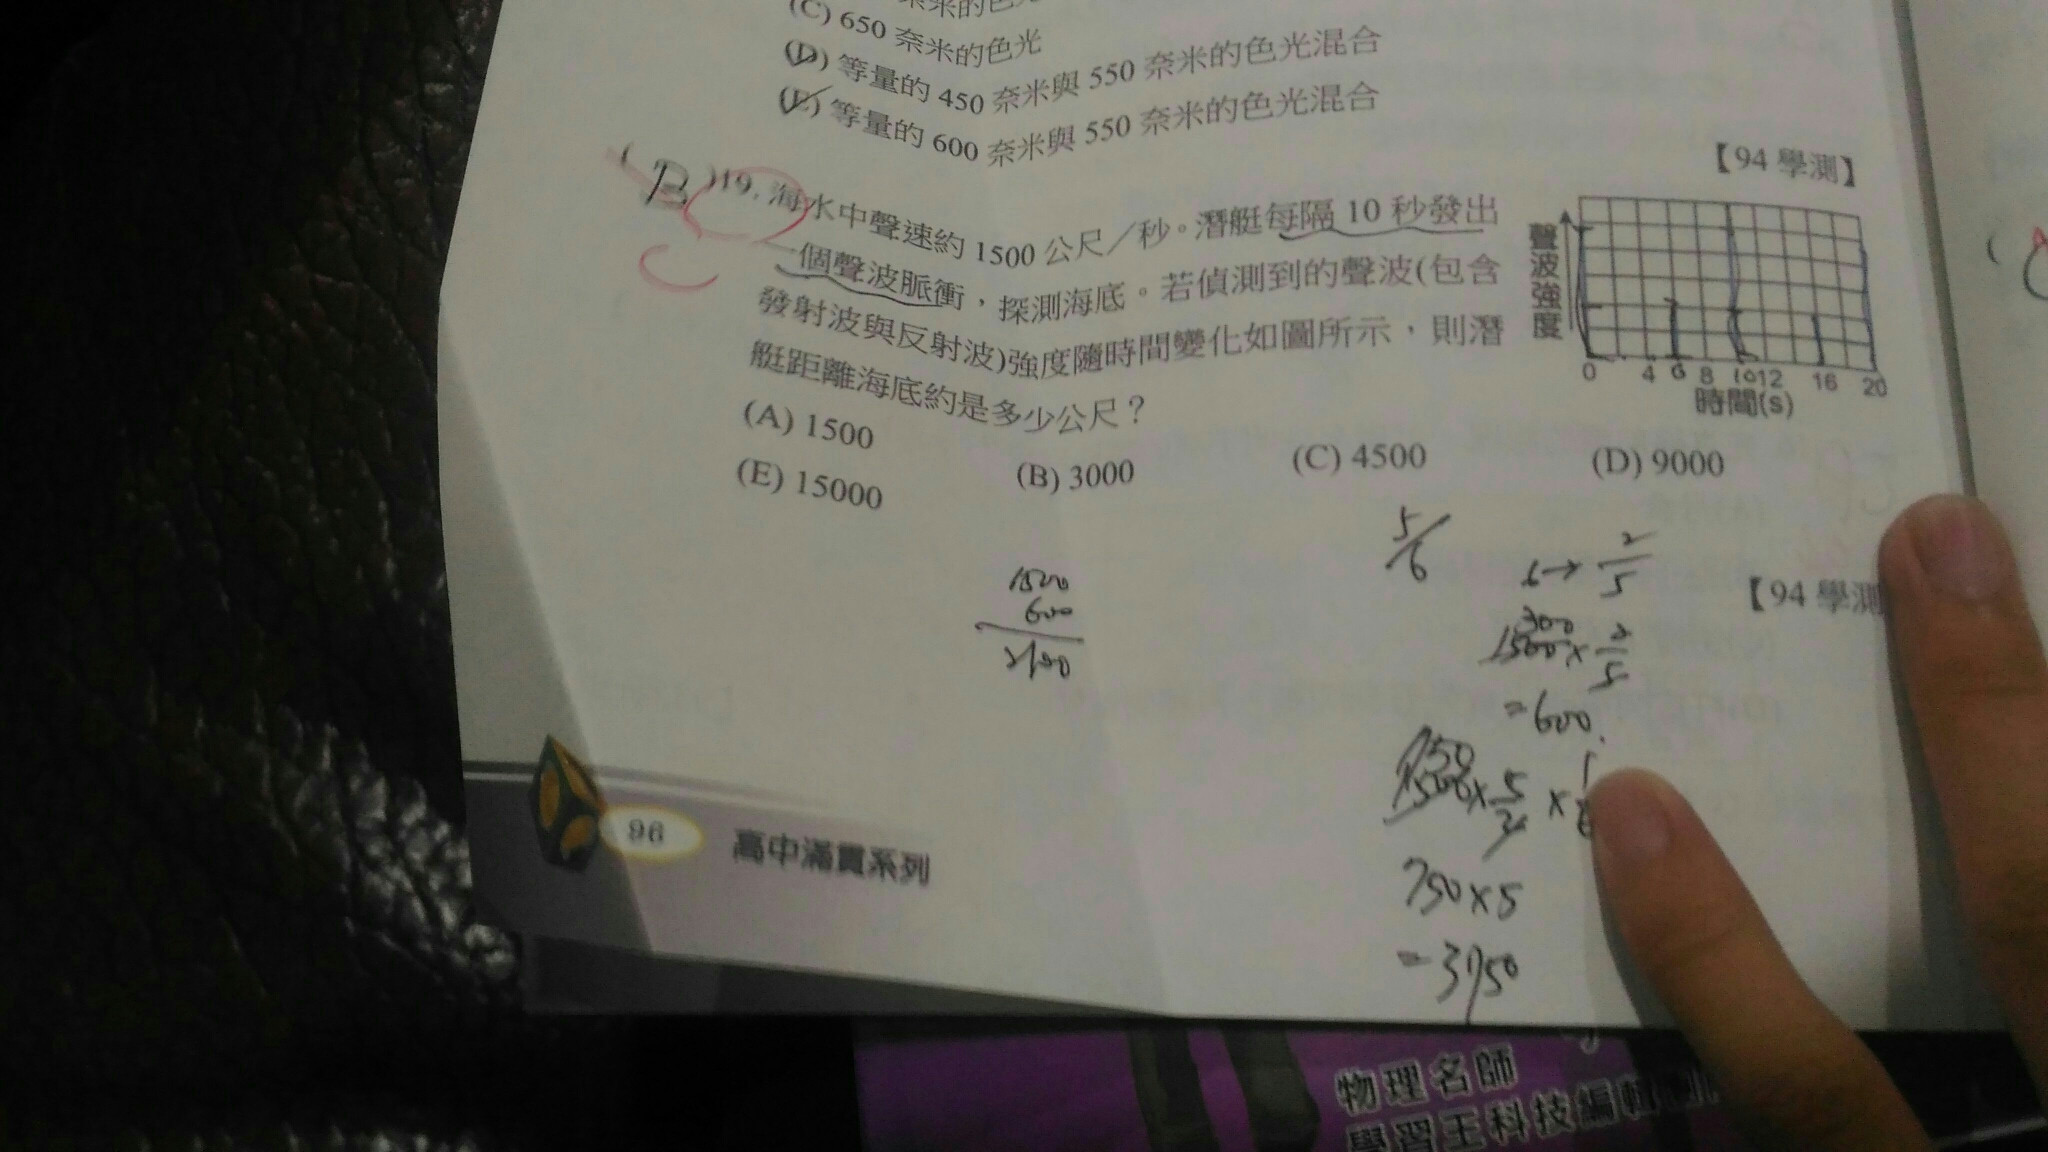 (C) 650 奈米的色光
(D) 等量的 450 奈米與 550 奈米的色光混合
(E) 等量的 600 奈米與 550 奈米的色光混合
【94 學測】
( B )19. 海水中聲速約 1500 公尺／秒。潛艇每隔 10 秒發出
一個聲波脈衝，探測海底。若偵測到的聲波(包含
發射波與反射波)強度隨時間變化如圖所示，則潛
艇距離海底約是多少公尺？
C
聲波強度
0 4 6 8 10 12 16 20
時間(s)
(A) 1500 (B) 3000 (C) 4500 (D) 9000
(E) 15000
【94 學測
1500
600
2100
5/6
6→ 2/5
300
1500× 2/5
=600.
750
1500× 5/2 ×
750×5
=3750
96 高中滿貫系列
物理名師
學習王科技編輯